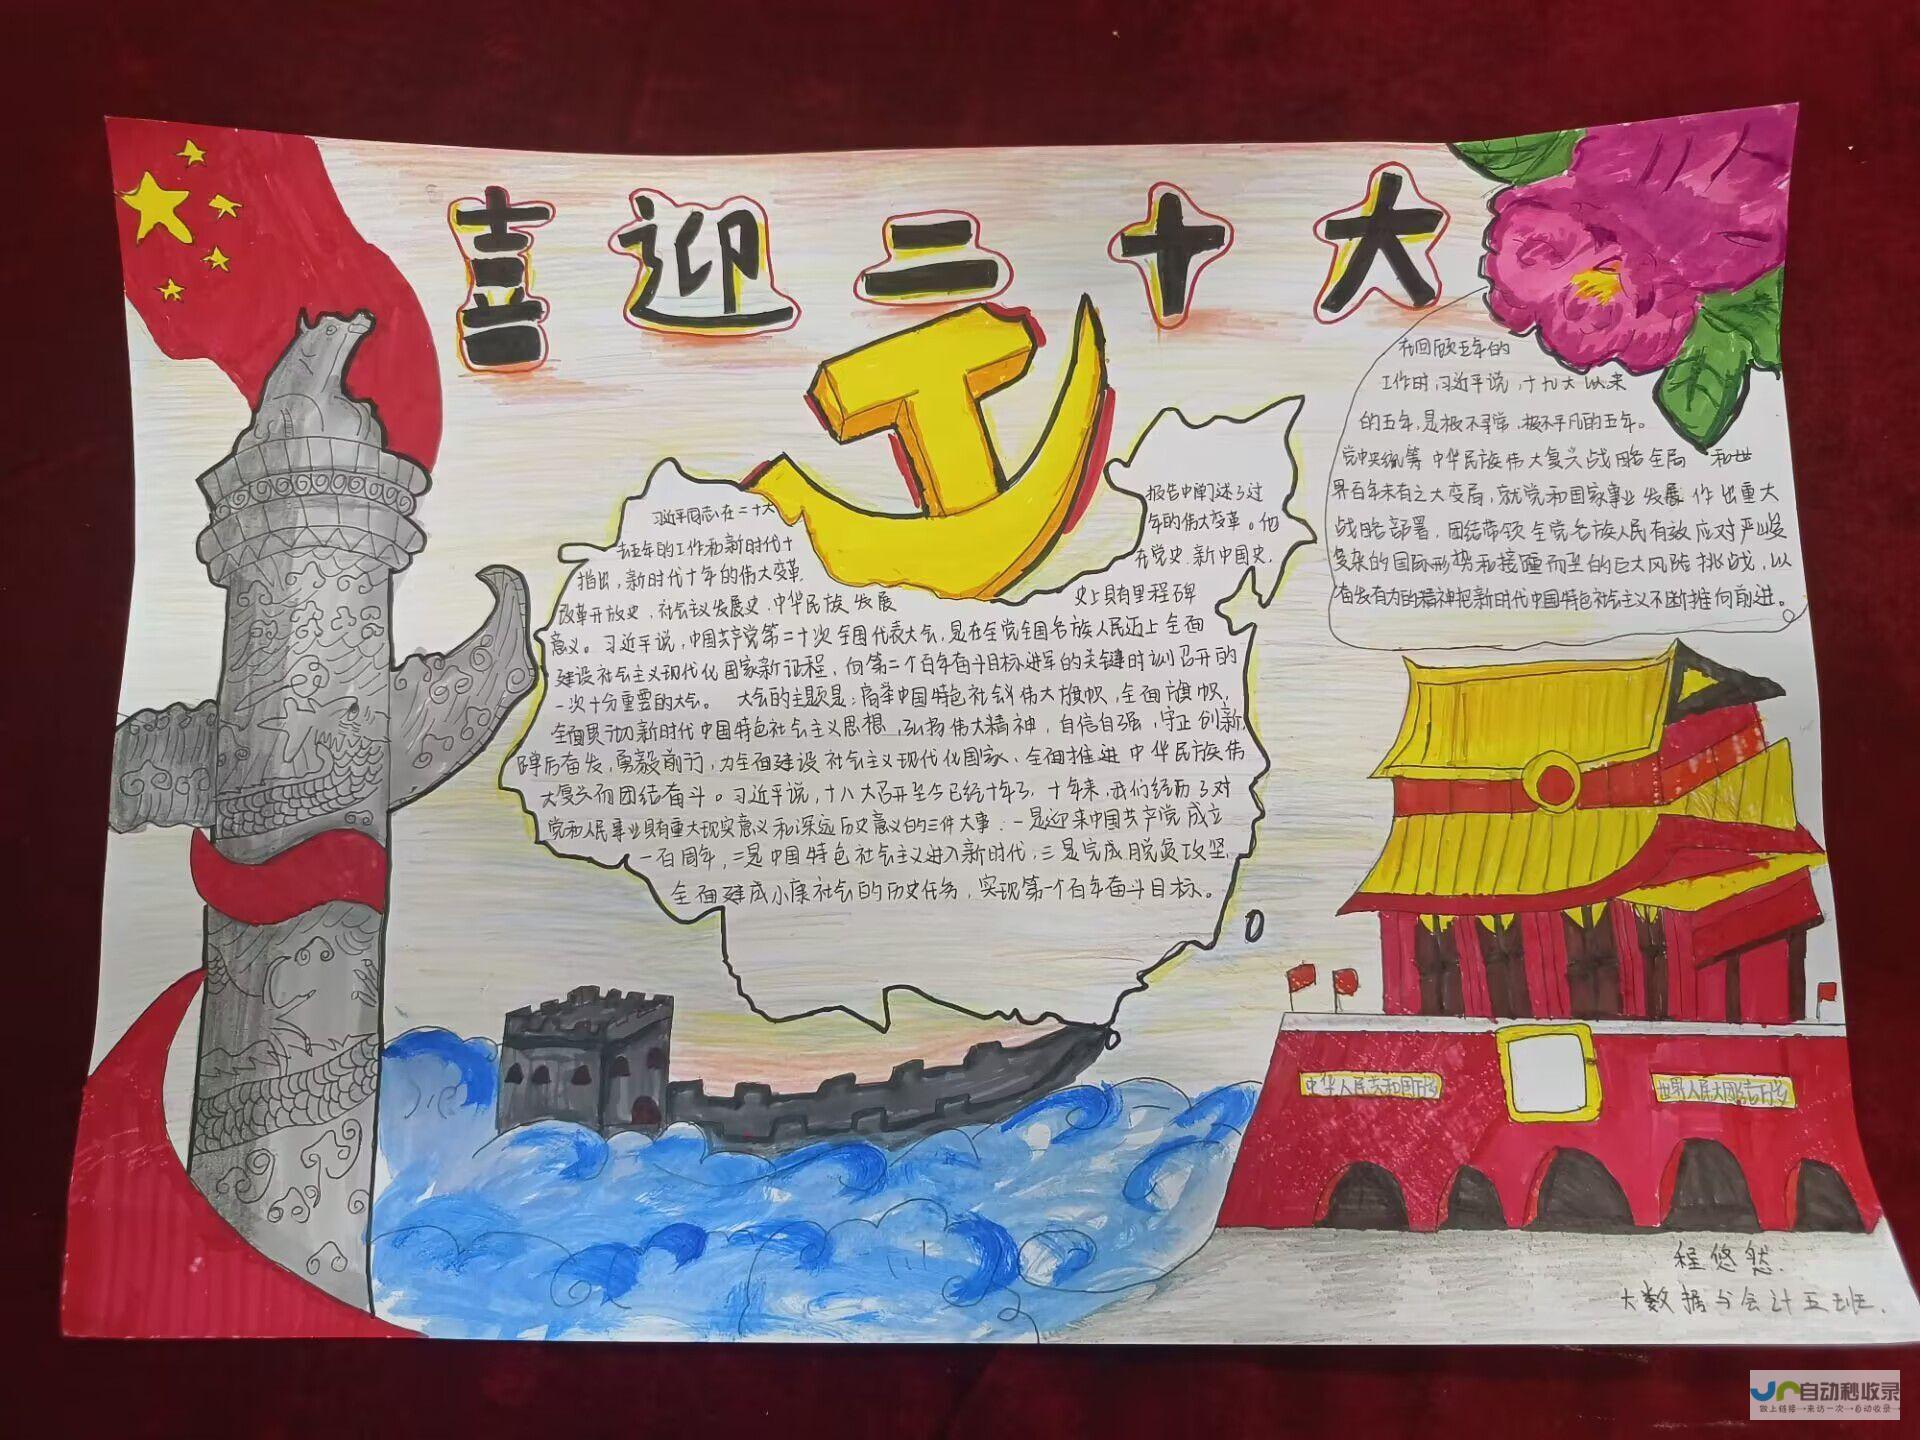 喜迎二十大
在回顾五年的
工作时,习近平说,十九大以来
的五年,是极不寻常、极不平凡的五年。
党中央统筹中华民族伟大复兴战略全局 和世
界百年未有之大变局,就党和国家事业发展作出重大
战略部署,团结带领全党各族人民有效应对严峻
复杂的国际形势和接踵而至的巨大风险挑战,以
奋发有为的精神把新时代中国特色社会主义不断推向前进。
习近平同志在二十大 报告中阐述了过
去五年的工作和新时代十 年的伟大变革。他
指出,新时代十年的伟大变革, 在党史、新中国史、
改革开放史、社会主义发展史、中华民族发展 史上具有里程碑
意义。习近平说,中国共产党第二十次全国代表大会,是在全党全国各族人民迈上全面
建设社会主义现代化国家新征程,向第二个百年奋斗目标进军的关键时刻召开的
一次十分重要的大会。 大会的主题是:高举中国特色社会主义伟大旗帜,全面旗帜,
全面贯彻新时代中国特色社会主义思想,弘扬伟大精神,自信自强,守正创新,
踔厉奋发,勇毅前行,为全面建设社会主义现代化国家、全面推进中华民族伟
大复兴而团结奋斗。习近平说,十八大召开至今已经十年了,十年来,我们经历了对
党和人民事业具有重大现实意义和深远历史意义的三件大事:一是迎来中国共产党成立
一百周年,二是中国特色社会主义进入新时代,三是完成脱贫攻坚、
全面建成小康社会的历史任务,实现第一个百年奋斗目标。
中华人民共和国万岁
世界人民大团结万岁
程悠然.
大数据与会计五班.
自动秒收录
做上链接→来访一次→自动收录